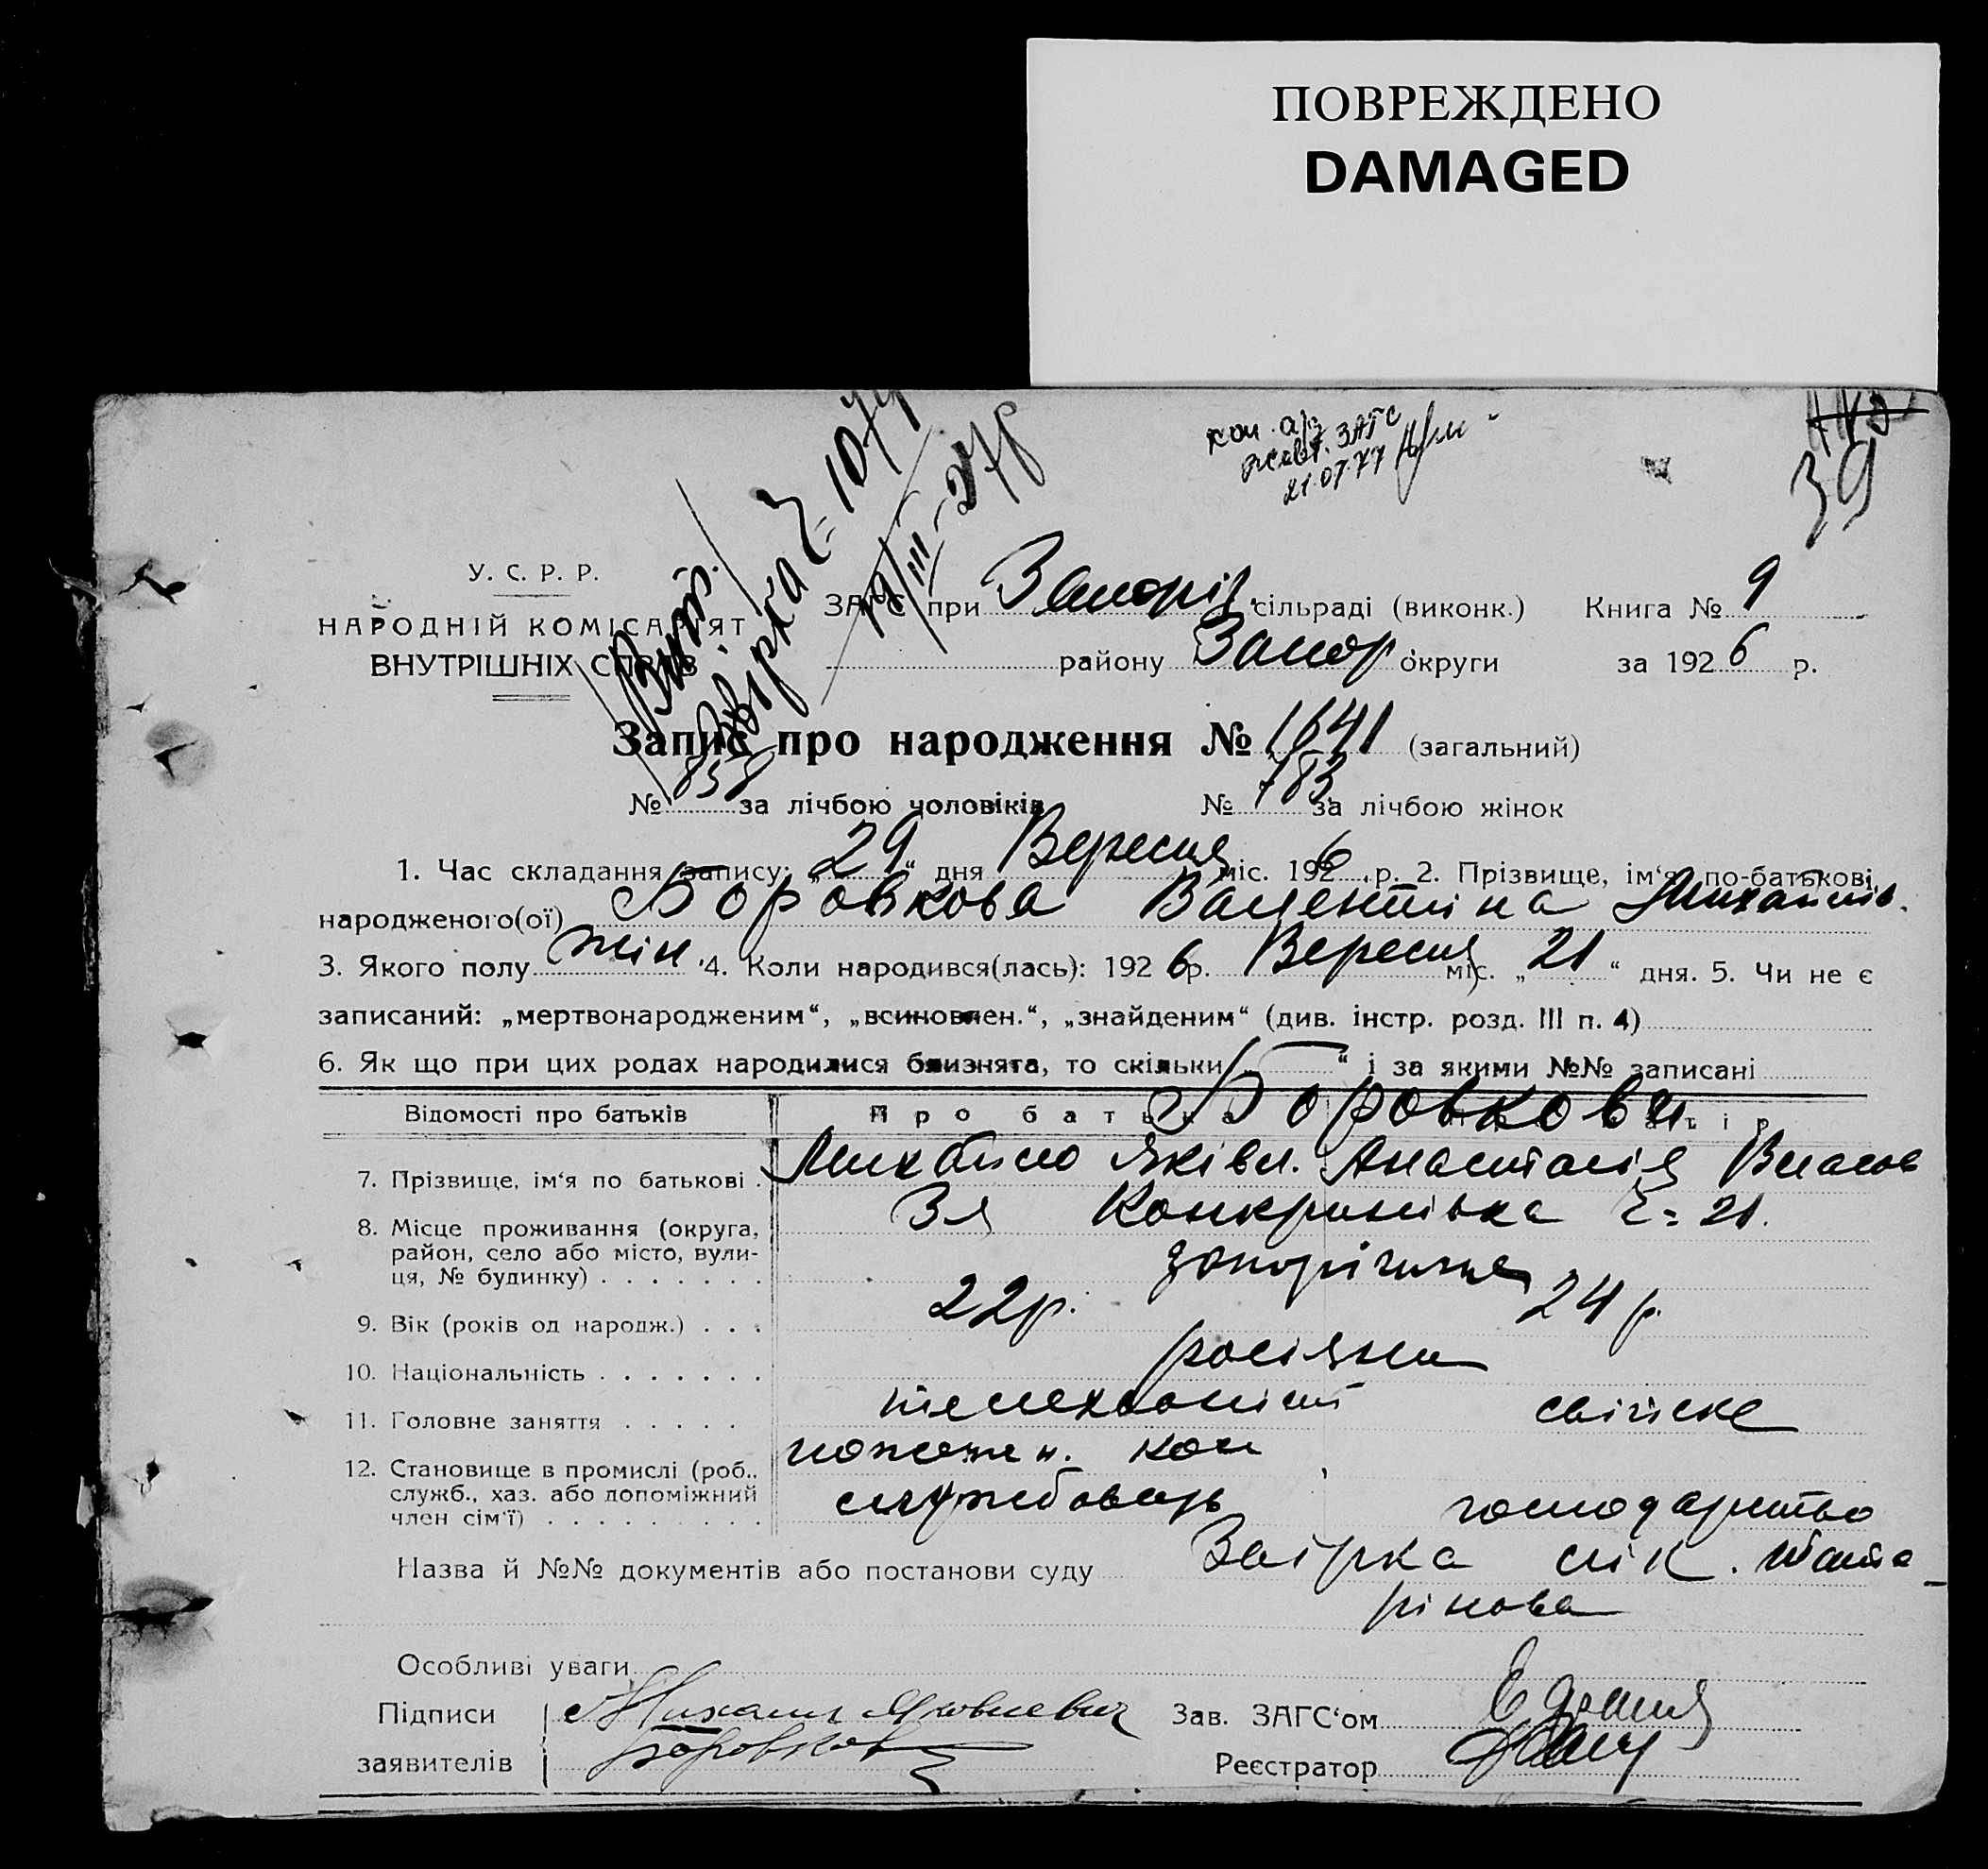 ПОВРЕЖДЕНО
DAMAGED
39
21.07.77
У. С. Р. Р.
НАРОДНІЙ КОМІСАРІЯТ
ВНУТРІШНІХ СПРАВ
Вит.
Звірка
ЗАГС при Запоріз. сільраді (виконк.) Книга № 9
району Запор округи за 1926 р.
Запис про народження № 1641 (загальний)
№ 858 за лічбою чоловіків № 783 за лічбою жінок
1. Час складання запису: „29“ дня Вересня міс. 1926 р. 2. Прізвище, ім‘я, по-батькові
народженого(ої) Боровкова Валентіна Михайлів.
3. Якого полу жін. 4. Коли народився(лась): 1926 р. Вересня міс. „21“ дня. 5. Чи не є
записаний: „мертвонародженим“, „всиновлен.“, „знайденим“ (див. інстр. розд. III п. 4)
6. Як що при цих родах народилися близнята, то скільки „ — “ і за якими №№ записані
Відомості про батьків Про батька Боровкови
7. Прізвище, ім‘я по батькові . Михайло Яківл. Анастасія Власов
8. Місце проживання (округа, район, село або місто, вули-ця, № будинку) . . . . . . . Зя Конкринівка 21.
запоріжжя
9. Вік (років од народж.) . . . 22р. 24 р.
10. Національність . . . . . . . росіяни
11. Головне заняття . . . . . телехвоніст свійске
пожежн. ком
12. Становище в промислі (роб.. служб., хаз. або допоміжний член сім‘ї) . . . . . . . . . службовець господарство
Назва й №№ документів або постанови суду Звірка лік.
Особливі уваги
Підписи Михаил Яковлевич Зав. ЗАГС‘ом
заявителів Боровков Реєстратор